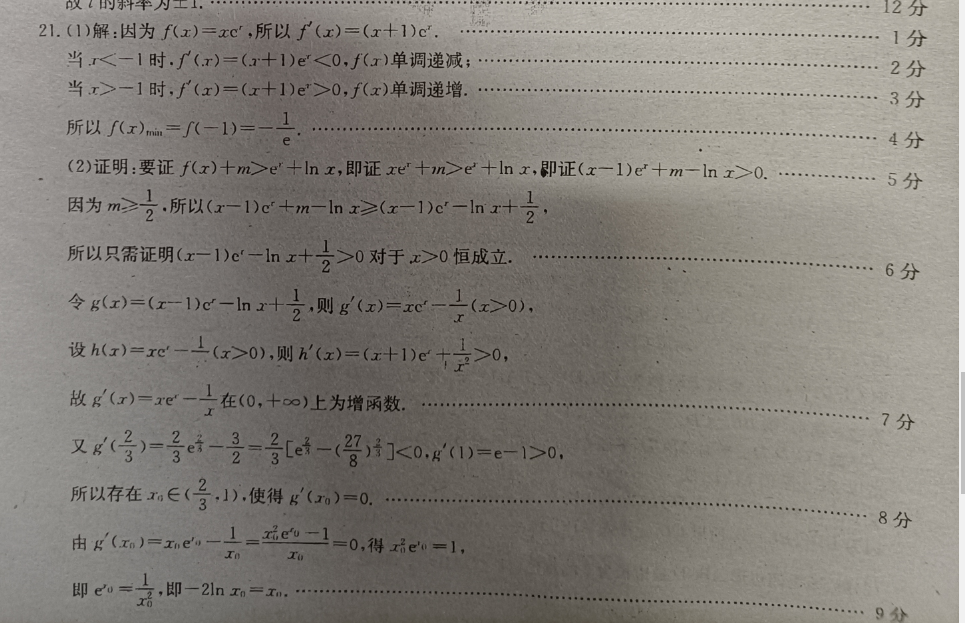 故 l 的斜率为±1. …… 12 分
21. (1)解:因为 f(x)=xeˣ,所以 f′(x)=(x+1)eˣ. …… 1 分
当 x<-1 时,f′(x)=(x+1)eˣ<0,f(x)单调递减; …… 2 分
当 x>-1 时,f′(x)=(x+1)eˣ>0,f(x)单调递增. …… 3 分
所以 f(x)min=f(-1)=-1/e. …… 4 分
(2)证明:要证 f(x)+m>eˣ+ln x,即证 xeˣ+m>eˣ+ln x,即证(x-1)eˣ+m-ln x>0. …… 5 分
因为 m≥1/2,所以(x-1)eˣ+m-ln x≥(x-1)eˣ-ln x+1/2,
所以只需证明(x-1)eˣ-ln x+1/2>0 对于 x>0 恒成立. …… 6 分
令 g(x)=(x-1)eˣ-ln x+1/2,则 g′(x)=xeˣ-1/x(x>0),
设 h(x)=xeˣ-1/x(x>0),则 h′(x)=(x+1)eˣ+1/x²>0,
故 g′(x)=xeˣ-1/x在(0,+∞)上为增函数. …… 7 分
又 g′(2/3)=2/3e^(2/3)-3/2=2/3[e^(2/3)-(27/8)^(2/3)]<0,g′(1)=e-1>0,
所以存在 x₀∈(2/3,1),使得 g′(x₀)=0. …… 8 分
由 g′(x₀)=x₀e^(x₀)-1/x₀=(x₀²e^(x₀)-1)/x₀=0,得 x₀²e^(x₀)=1,
即 e^(x₀)=1/x₀²,即-2ln x₀=x₀. …… 9 分